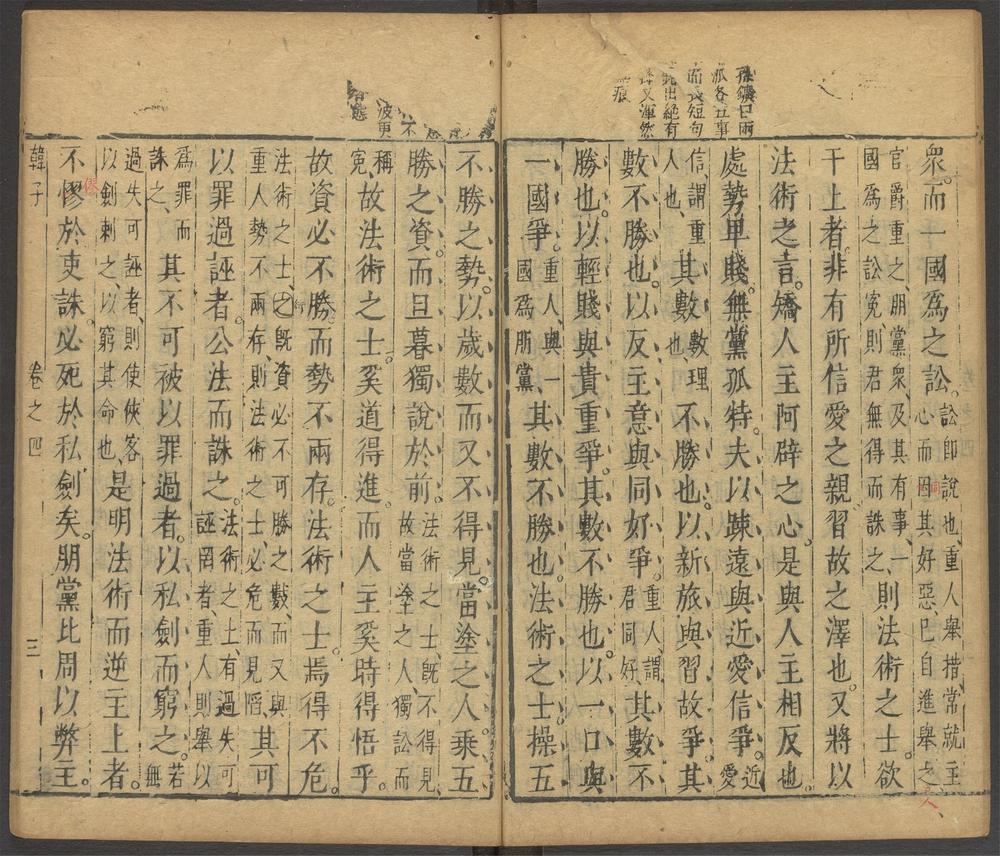 孫鑛曰兩
派各五事
而長短句
錯出絕有
又渾然
痕
衆。而一國爲之訟。訟即說也、重人舉措常就主
心而因其好惡、已自進舉之
同
人
官爵重之、朋黨衆、及其有事、一
國爲之訟冤則君無得而誅之、則法術之士、欲
干上者。非有所信愛之親。習故之澤也。又將以
法術之言。矯人主阿辟之心。是與人主相反也。
處勢卑賤。無黨孤特。夫以踈遠與近愛信爭。近
愛
信、謂重
人也、其數數理
也不勝也。以新旅與習故爭。其
數不勝也。以反主意與同好爭。重人、謂
君同好、其數不
勝也。以輕賤與貴重爭。其數不勝也。以一口與
一國爭。重人、與一
國爲朋黨、其數不勝也。法術之士。操五
不
波更
態
不勝之勢。以歲數而又不得見。當塗之人。乘五
勝之資。而旦暮獨說於前。法術之士、既不得見、
故當塗之人獨訟而
稱
冤、故法術之士。奚道得進。而人主奚時得悟乎。
故資必不勝。而勢不兩存。法術之士。焉得不危。
法術之士、既資必不可勝之數、而又與
重人勢不兩存、則法術之士必危而見陷、其可
以罪過誣者。公法而誅之。法術之士、有過失可
誣罔者重人則舉以
爲罪而
誅之、其不可被以罪過者。以私劍而窮之。若
無
過失可誣者、則使俠客
以劍刺之、以窮其命也、是明法術而逆主上者。
不僇於吏誅。必死於私劍矣。朋黨比周以弊主。
韓子 卷之四 三